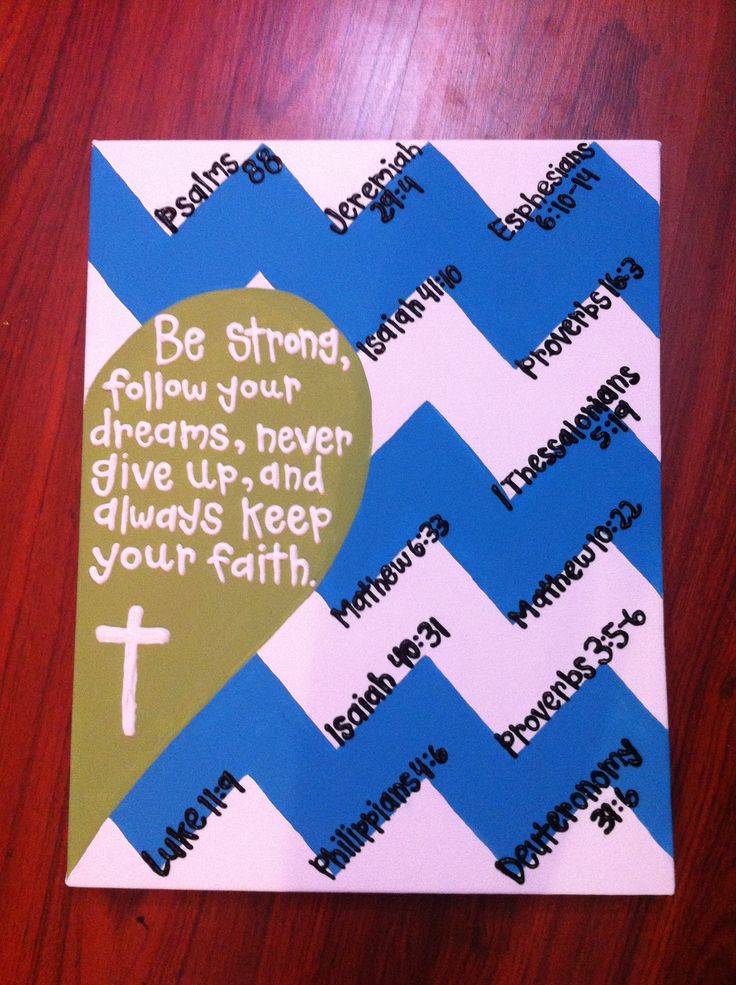 Psalms
88
Jeremiah
29:4
Esphesians
6:10-14
Isaiah 41:10
Proverbs 16:3
Be strong,
follow your
dreams, never
give up, and
always keep
your faith.
1 Thessalonians
5:19
Mathew 6:33
Mathew 10:22
Isaiah 40:31
Proverbs 3:5-6
Luke 11:9
Philippians 4:6
Deuteronomy
31:6